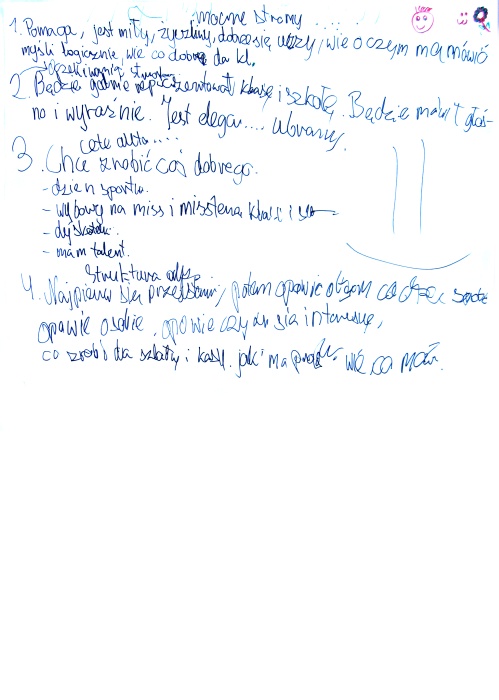 mocne strony ....
1. Pomaga, jest miły, życzliwy, dobrze się uczy, wie o czym ma mówić
myśli logicznie, wie co dobre da kl.
oczekiwania
2. Będzie godnie reprezentował klasę i szkołę. Będzie mówił głoś-
no i wyraźnie. Jest elega.... ubrany.
cele
3. Chce zrobić coś dobrego.
- dzień sportu.
- wybory na miss i mistera klasy i
- dyskoteki.
- mam talent.
Struktura
4. Najpierw się przedstawi, potem opowie o tym co chce
opowie o sobie. opowie czym się interesuje,
co zrobi dla szkoły i klasy. jaki ma wie co mówi.